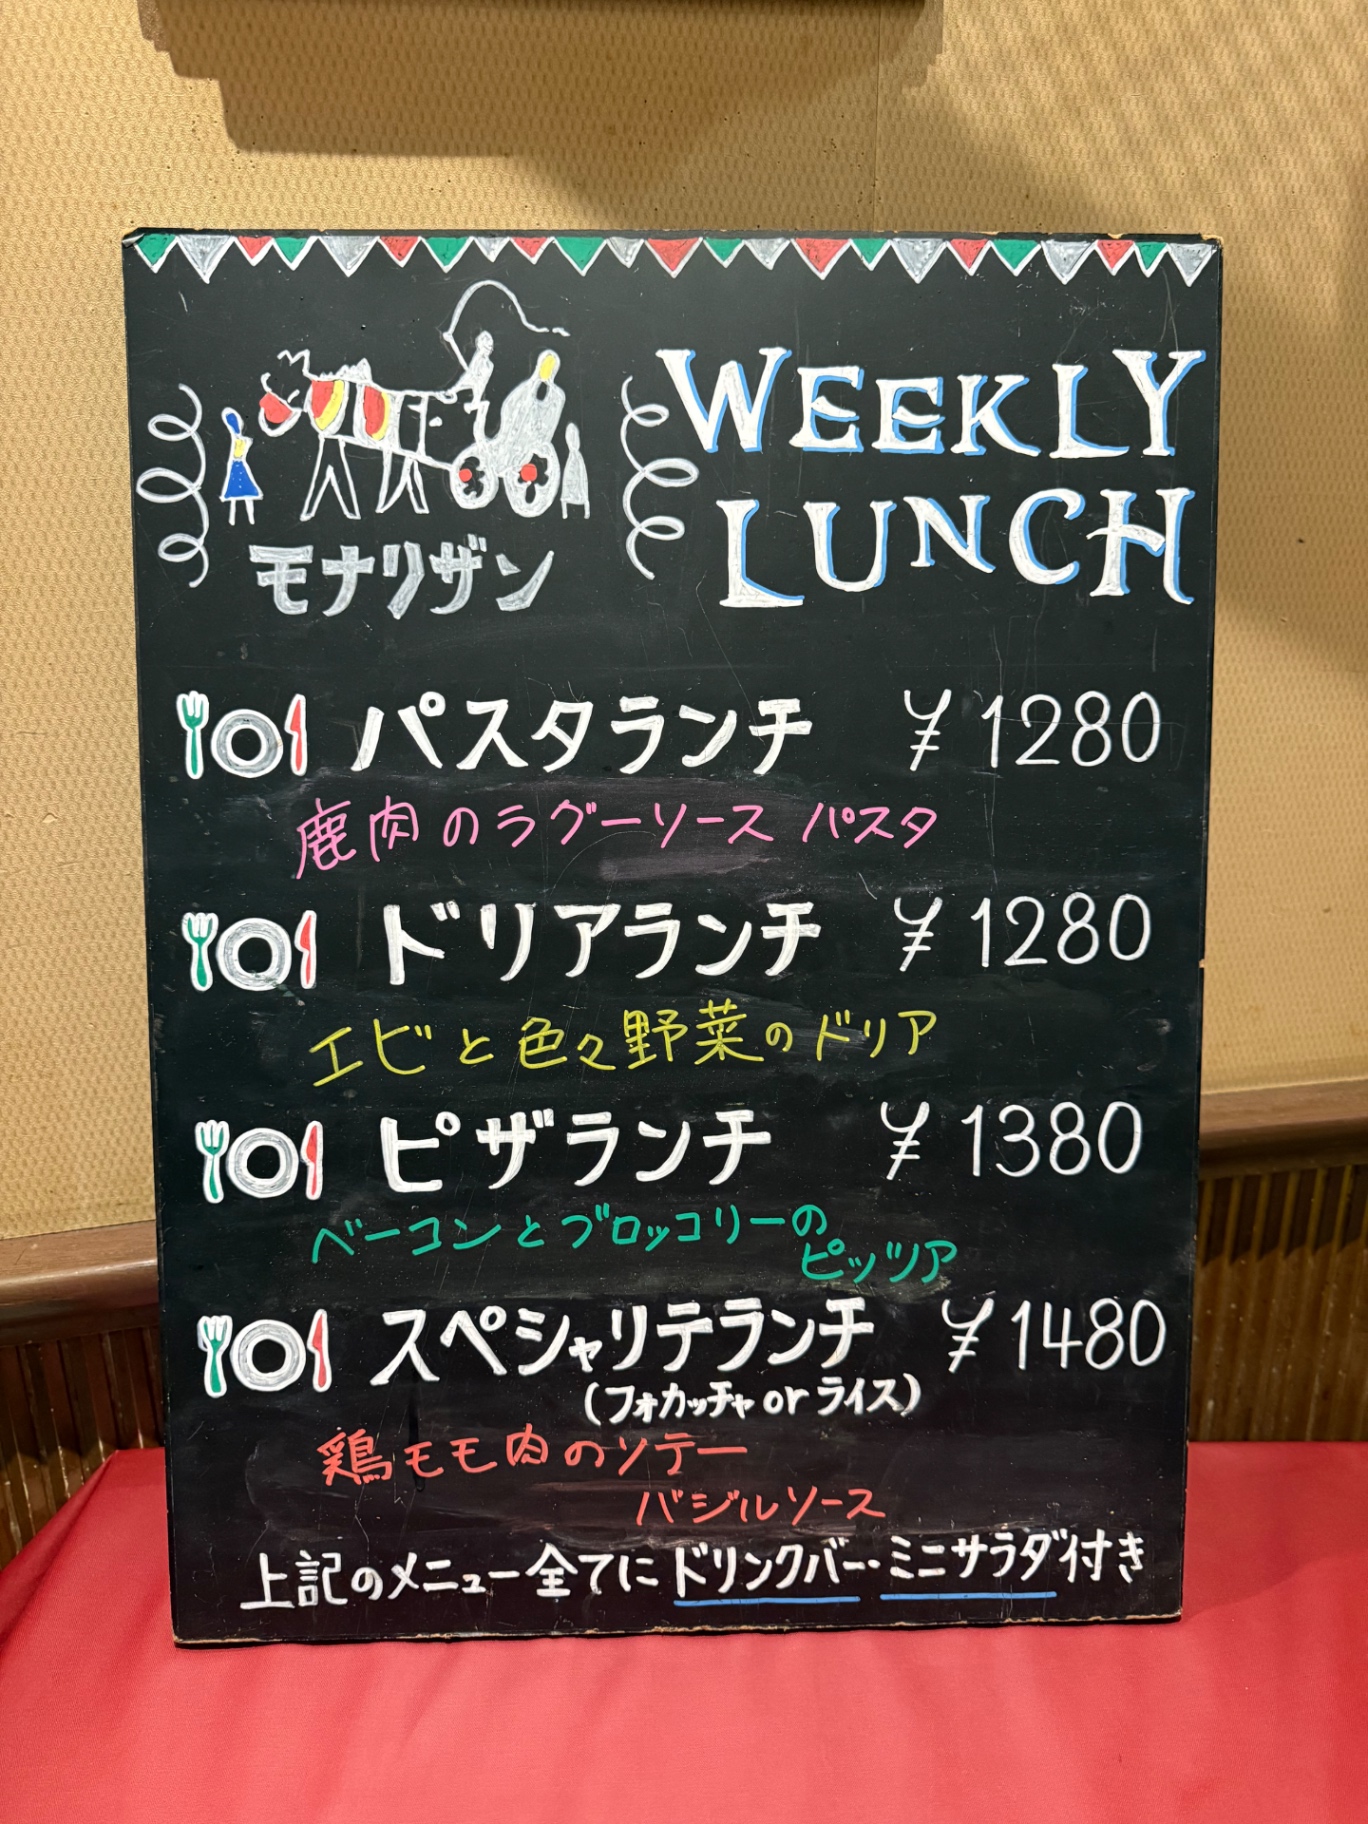 WEEKLY
LUNCH
モナリザン
パスタランチ ¥1280
鹿肉のラグーソース パスタ
ドリアランチ ¥1280
エビと色々野菜のドリア
ピザランチ ¥1380
ベーコンとブロッコリーの
ピッツァ
スペシャリテランチ ¥1480
(フォカッチャ or ライス)
鶏モモ肉のソテー
バジルソース
上記のメニュー全てにドリンクバー・ミニサラダ付き